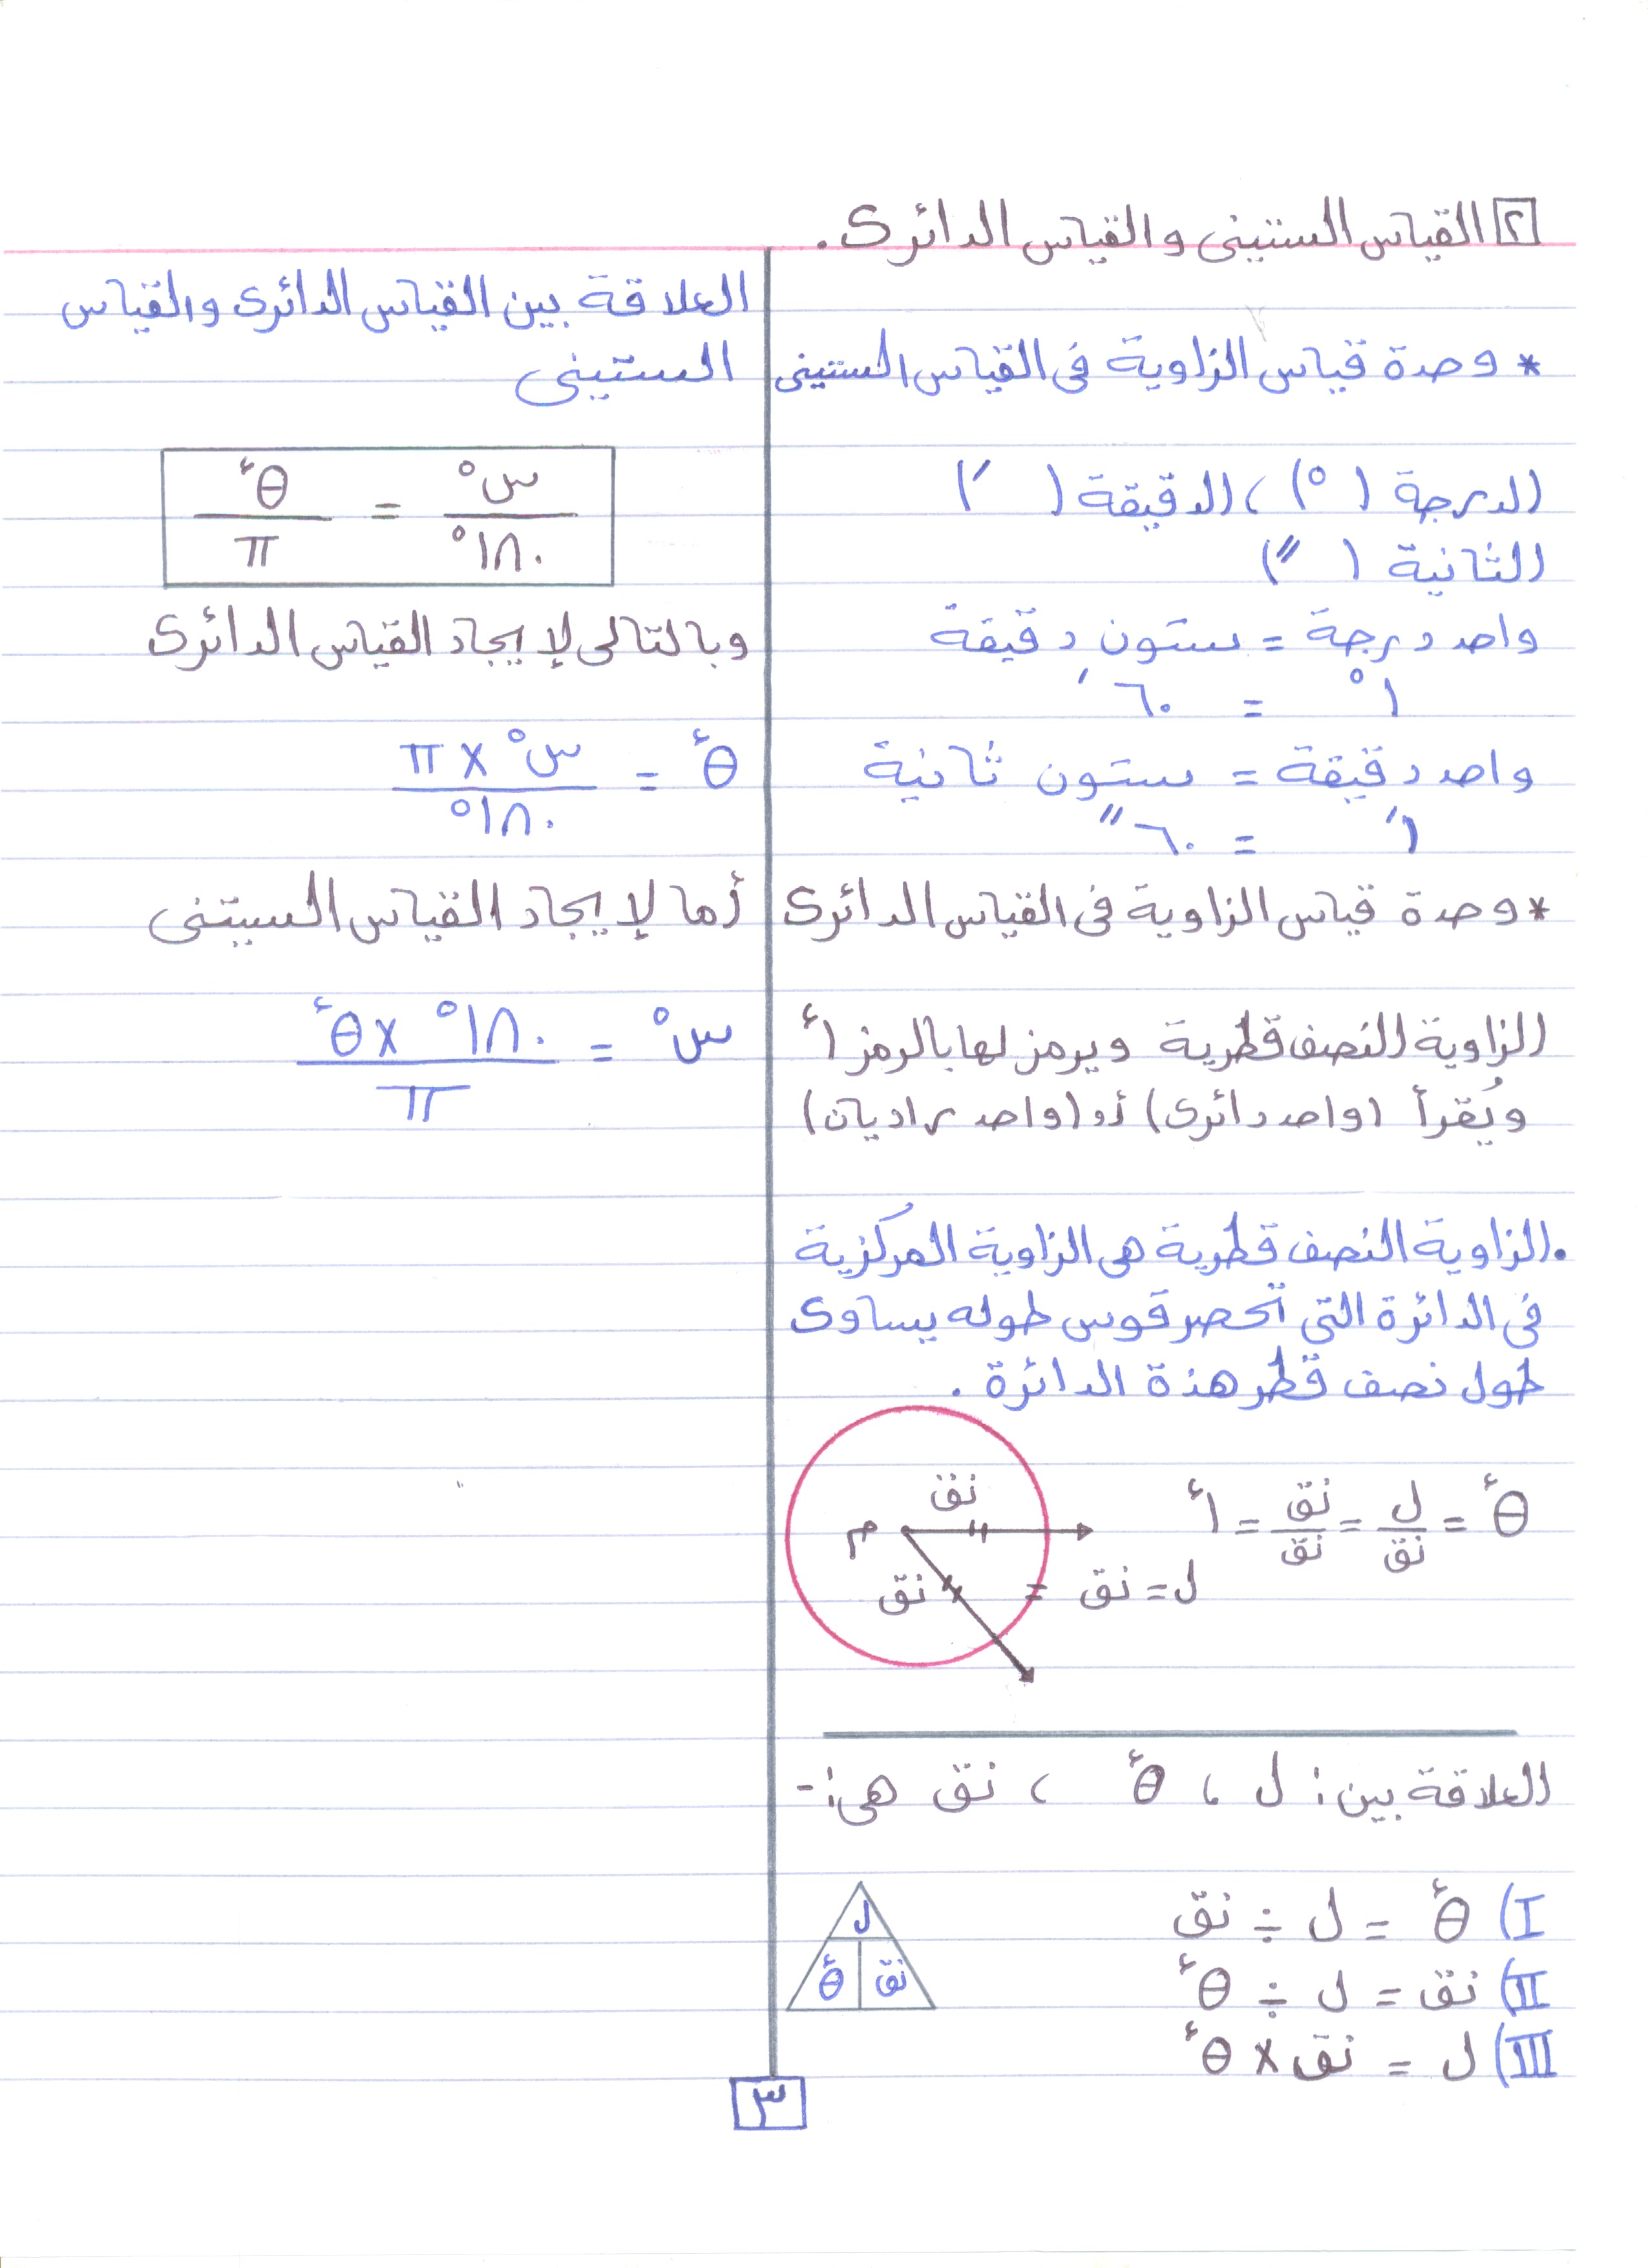 ٢ القياس الستينى والقياس الدائرى.
* وحدة قياس الزاوية فى القياس الستينى
الدرجة ( °)، الدقيقة ( ′)
الثانية ( ″)
واحد درجة = ستون دقيقة
١° = ٦٠′
واحد دقيقة = ستون ثانية
١′ = ٦٠″
* وحدة قياس الزاوية فى القياس الدائرى
الزاوية النصف قطرية ويرمز لها بالرمز ١ء
ويُقرأ (واحد دائرى) أو (واحد راديان)
. الزاوية النصف قطرية هى الزاوية المركزية
فى الدائرة التى تحصر قوس طوله يساوى
طول نصف قطر هذة الدائرة .
θء = ل/نق = نق/نق = ١ء
نق
م
نق
ل = نق
العلاقة بين: ل ، θء ، نق هى:-
I) θء = ل ÷ نق
II) نق = ل ÷ θء
III) ل = نق × θء
ل
نق θء
العلاقة بين القياس الدائرى والقياس
الستينى
س°/١٨٠° = θء/π
وبالتالى لإيجاد القياس الدائرى
θء = س° × π/١٨٠°
أما لإيجاد القياس السيتنى
س° = ١٨٠° × θء/π
٣